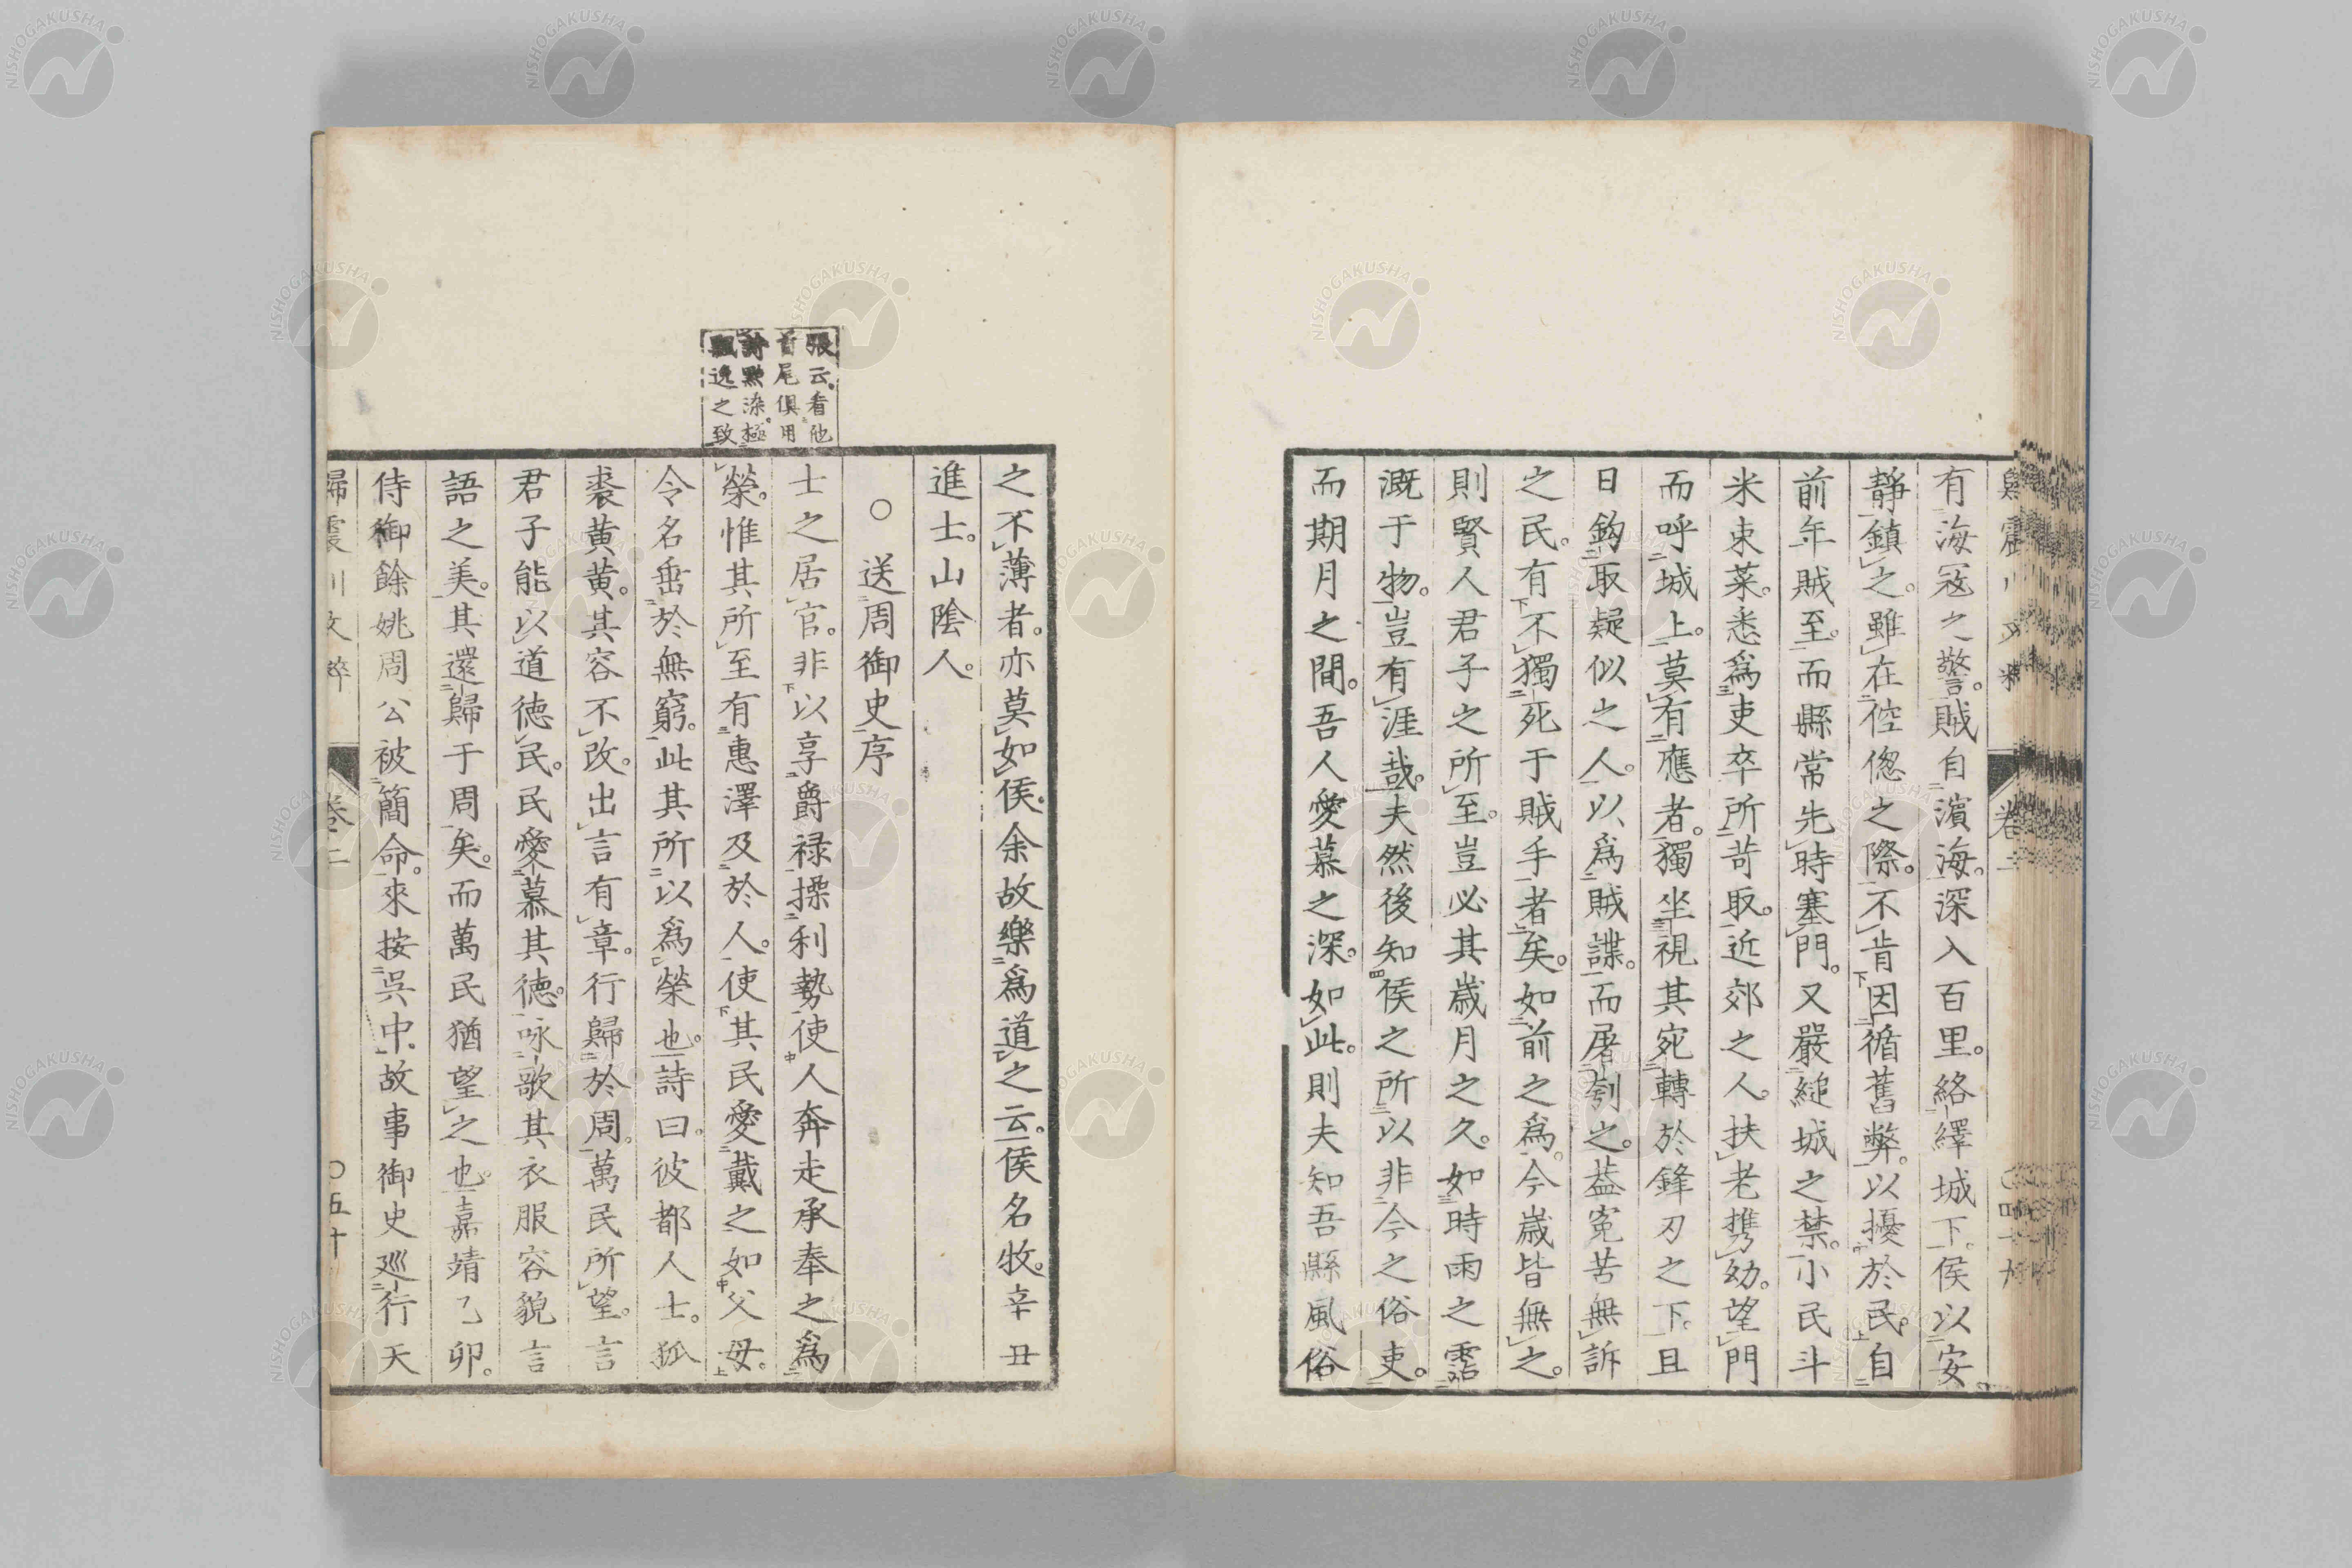 有海冦之警。賊自濵海。深入百里。絡繹城下。侯以安
靜鎮之。雖在倥偬之際。不肯因循舊弊。以擾於民。自
前年賊至。而縣常先時塞門。又嚴縋城之禁。小民斗
米束菜。悉爲吏卒所苛取。近郊之人。扶老携幼。望門
而呼城上。莫有應者。獨坐視其宛轉於鋒刃之下。且
日鈎取疑似之人。以爲賊諜。而屠刳之。葢寃苦無訴
之民。有不獨死于賊手者矣。如前之爲。今歳皆無之。
則賢人君子之所至。豈必其歳月之久。如時雨之霑
溉于物。豈有涯哉。夫然後知侯之所以非今之俗吏。
而期月之間。吾人愛慕之深。如此。則夫知吾縣風俗
之不薄者。亦莫如侯。余故樂爲道之云。侯名牧。辛丑
進士。山陰人。
○送周御史序
士之居官。非以享爵禄操利勢使人奔走承奉之爲
榮。惟其所至有惠澤及於人。使其民愛戴之如父母。
令名垂於無窮。此其所以爲榮也。詩曰。彼都人士。狐
裘黄黄。其容不改。出言有章。行歸於周。萬民所望。言
君子能以道徳民。民愛慕其徳。咏歌其衣服容貌言
語之美。其還歸于周矣。而萬民猶望之也。嘉靖乙卯。
侍御餘姚周公被簡命。來按呉中。故事御史巡行天
張云。看他
首尾俱用
詩點染。極
飄逸之致
歸震川文粹
卷二
○五十